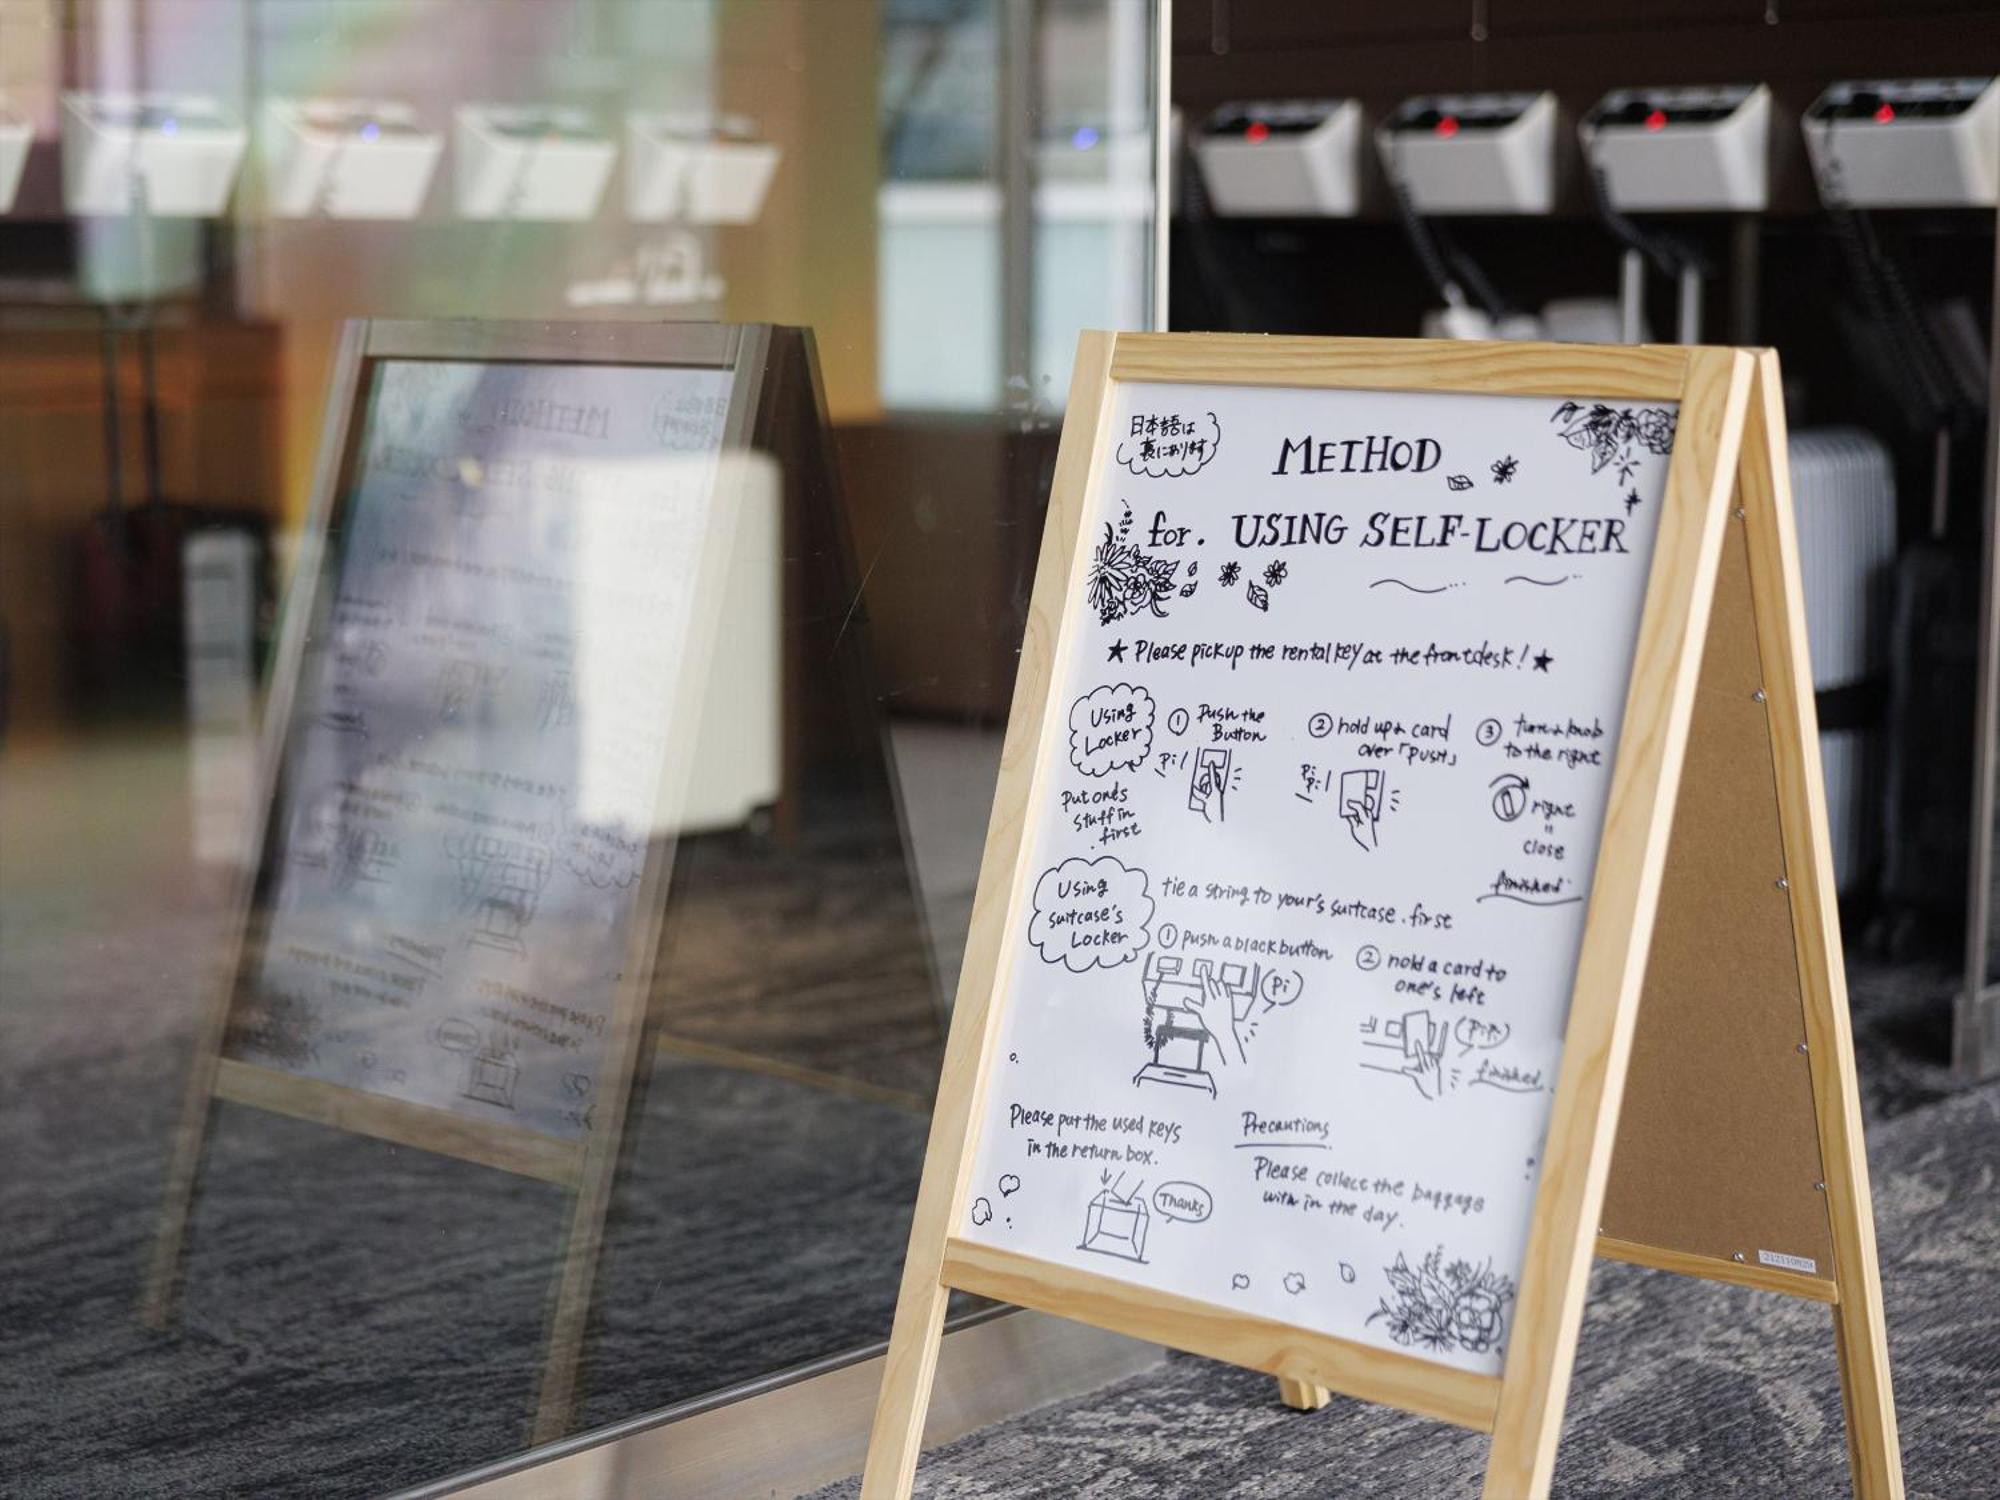 日本語は
裏にあります
METHOD
for. USING SELF-LOCKER
★ Please pickup the rental key at the frontdesk! ★
Using
Locker
Put one's
stuff in
first
① Push the
Button
Pi!
② hold up a card
over「PUSH」
Pi
Pi!
③ turn a knob
to the right
right
=
close
finished
Using
suitcase's
Locker
tie a string to your's suitcase. first
① push a black button
Pi
② hold a card to
one's left
finished.
Please put the used keys
in the return box.
Thanks
Precautions
Please collect the baggage
with in the day.
212110829